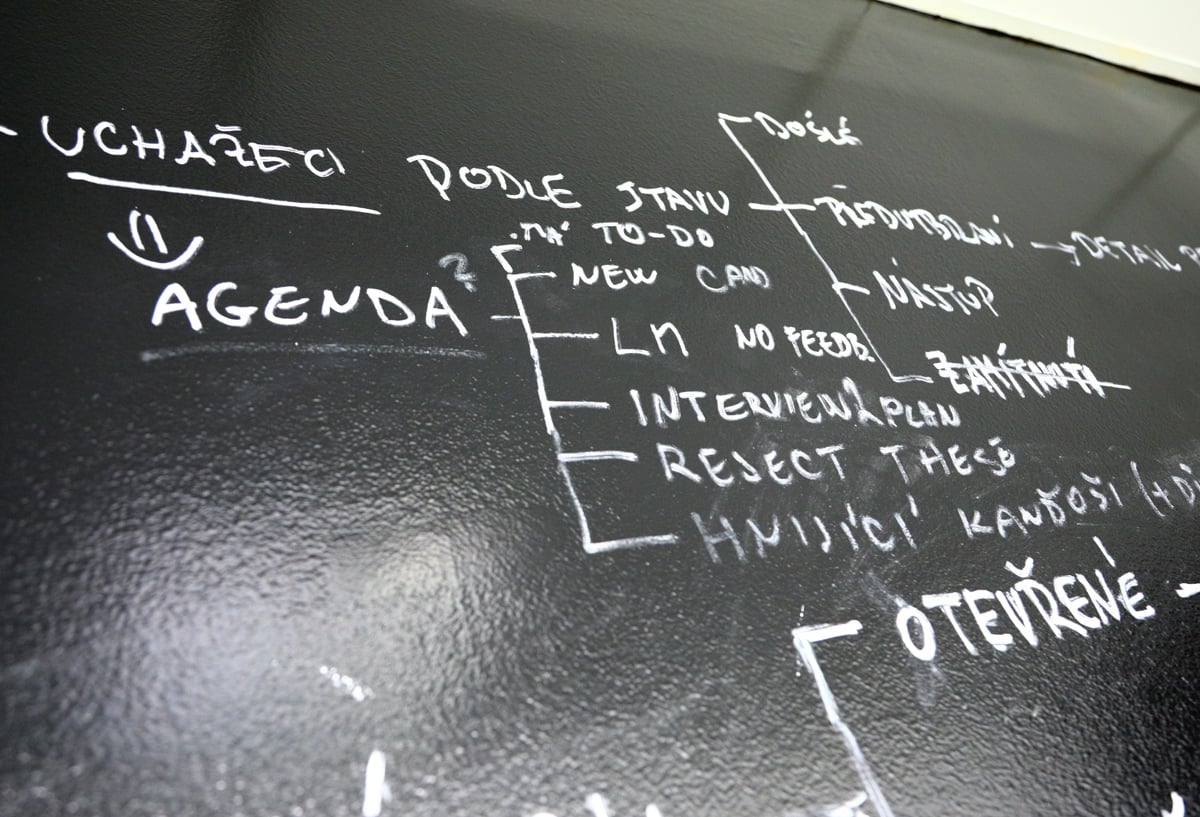 UCHAZEČI PODLE STAVU
DOŠLÉ
PŘEDVYBRANÍ → DETAIL
NÁSTUP
ZAMÍTNUTÍ
AGENDA?
MÁ TO-DO
NEW CAND
LM NO FEEDB.
INTERVIEW PLAN
REJECT THESE
HNIJÍCÍ KANĎOŠI (+
OTEVŘENÉ